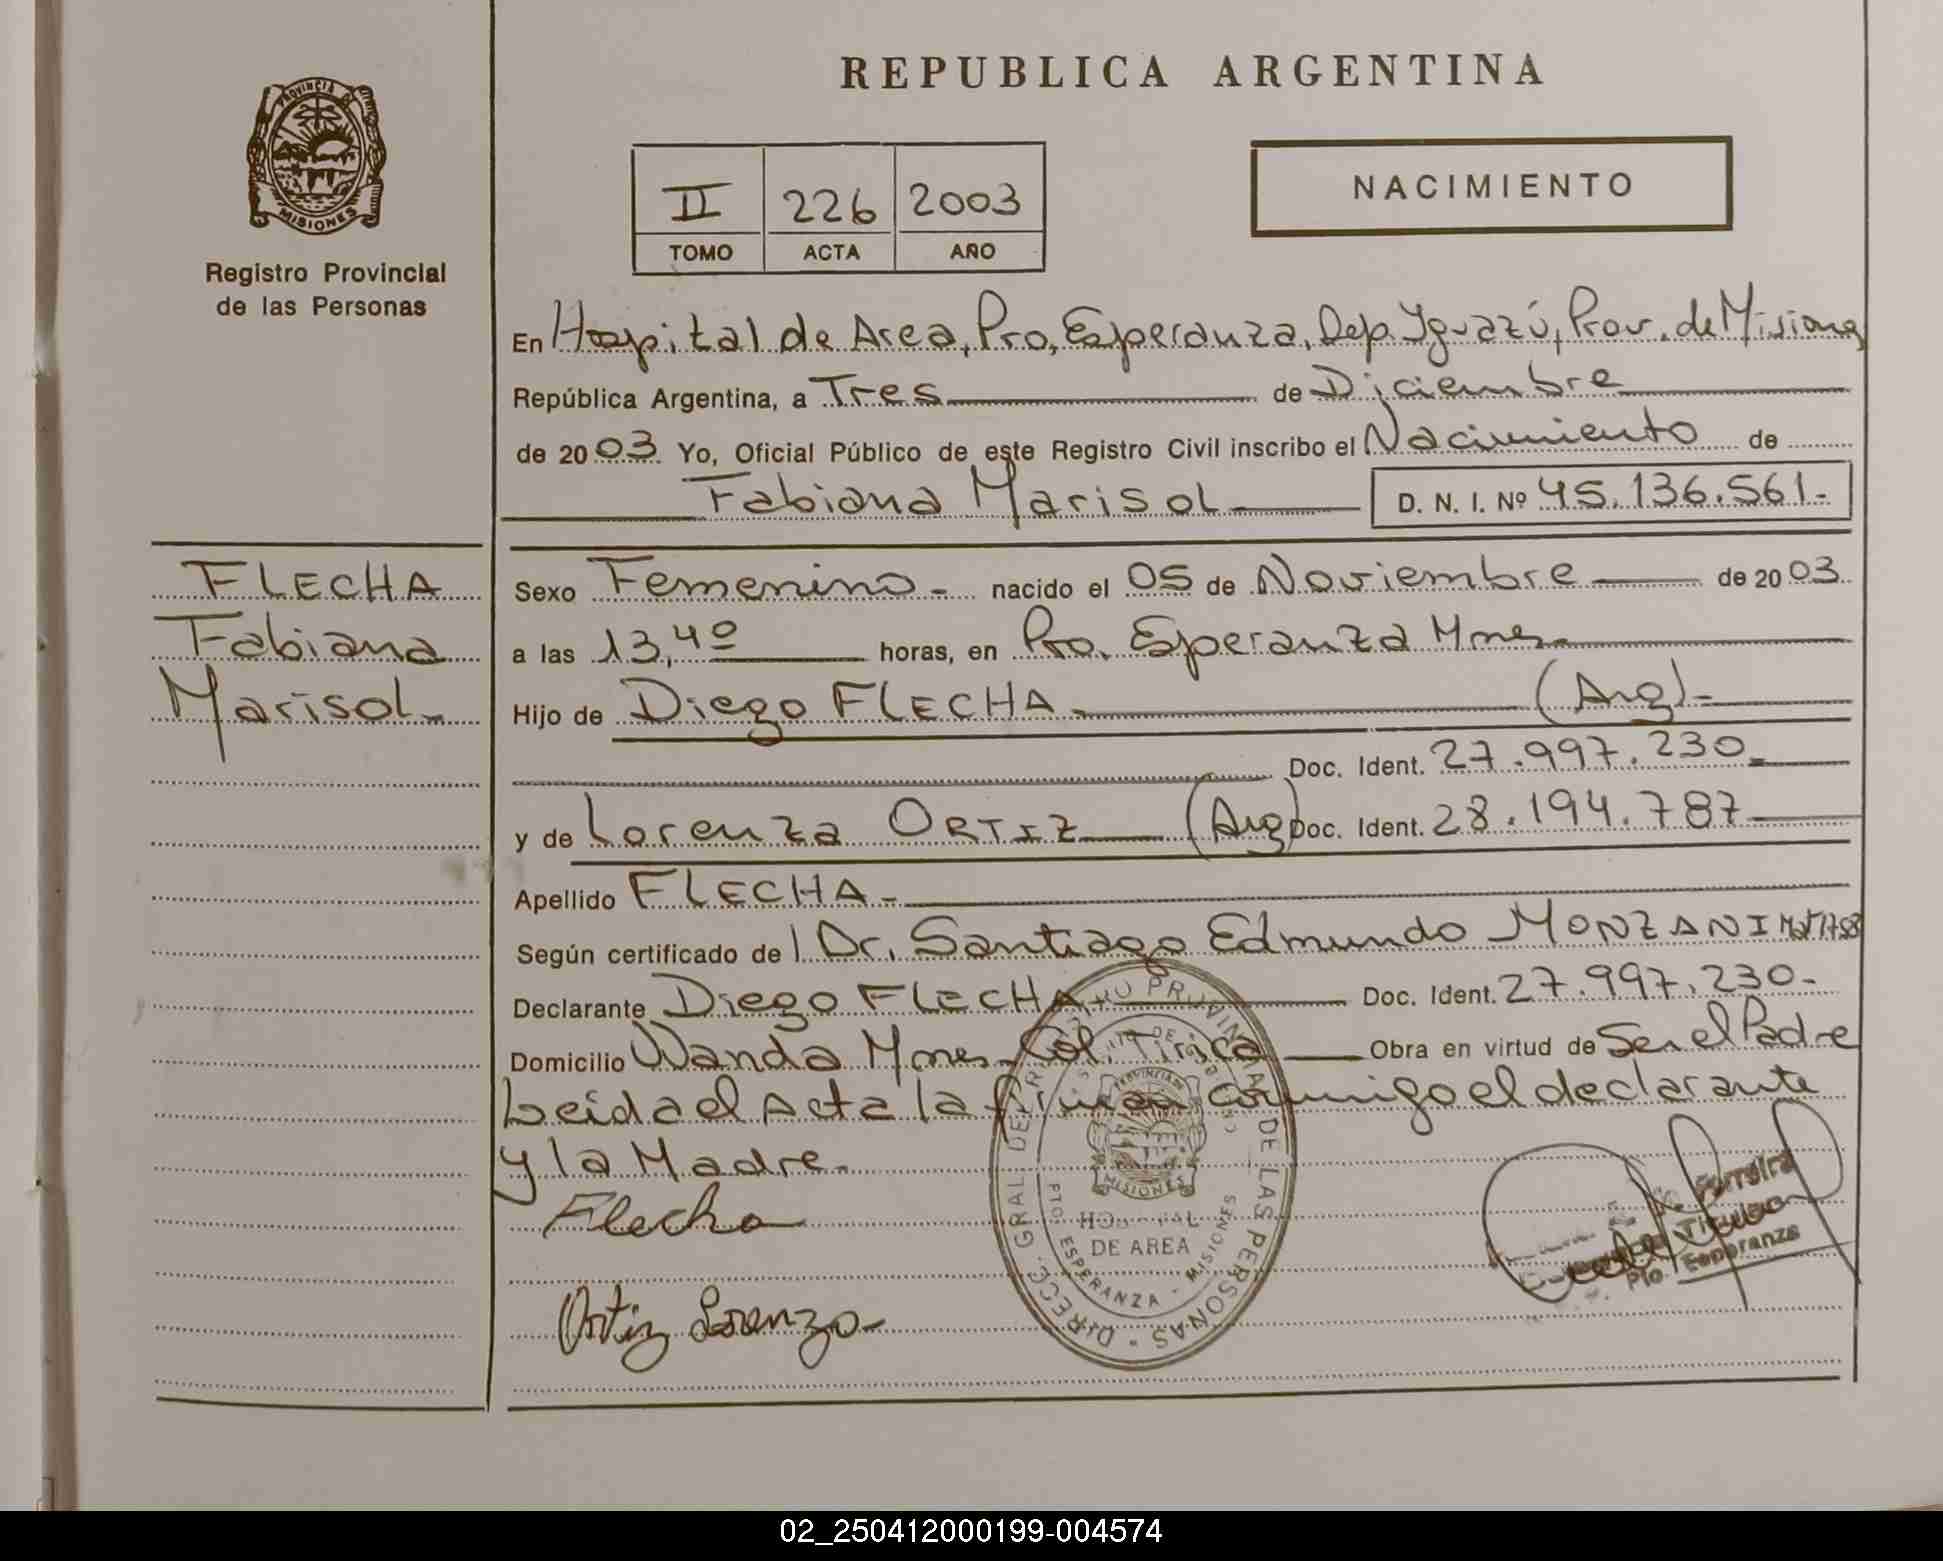 REPUBLICA ARGENTINA
PROVINCIA DE
MISIONES
Registro Provincial
de las Personas
II 226 2003
TOMO ACTA AÑO
NACIMIENTO
En Hospital de Area, Pto, Esperanza, Dep. Iguazú, Prov. de Misiones
República Argentina, a Tres de Diciembre
de 2003 Yo, Oficial Público de este Registro Civil inscribo el Nacimiento de
Fabiana Marisol D. N. I. Nº 45.136.561.-
FLECHA
Fabiana
Marisol.-
Sexo Femenino.- nacido el 05 de Noviembre de 2003
a las 13,40 horas, en Pto. Esperanza Mnes.-
Hijo de Diego FLECHA.- (Arg).-
Doc. Ident. 27.997.230.-
y de Lorenza ORTIZ (Arg) Doc. Ident. 28.194.787
Apellido FLECHA.-
Según certificado de Dr. Santiago Edmundo MONZANI
Declarante Diego FLECHA.- Doc. Ident. 27.997.230.-
Domicilio Wanda Mnes. Col. Tirica Obra en virtud de Ser el Padre
Leida el Acta la firman conmigo el declarante
y la Madre.-
Flecha
Ortiz Lorenza.-
DIRECC. GRAL. DEL REGISTRO PROVINCIAL DE LAS PERSONAS
PROVINCIA DE
MISIONES
HOSPITAL
DE AREA
PTO. ESPERANZA - MISIONES
Ferreira
Titular
Pto. Esperanza
02_250412000199-004574